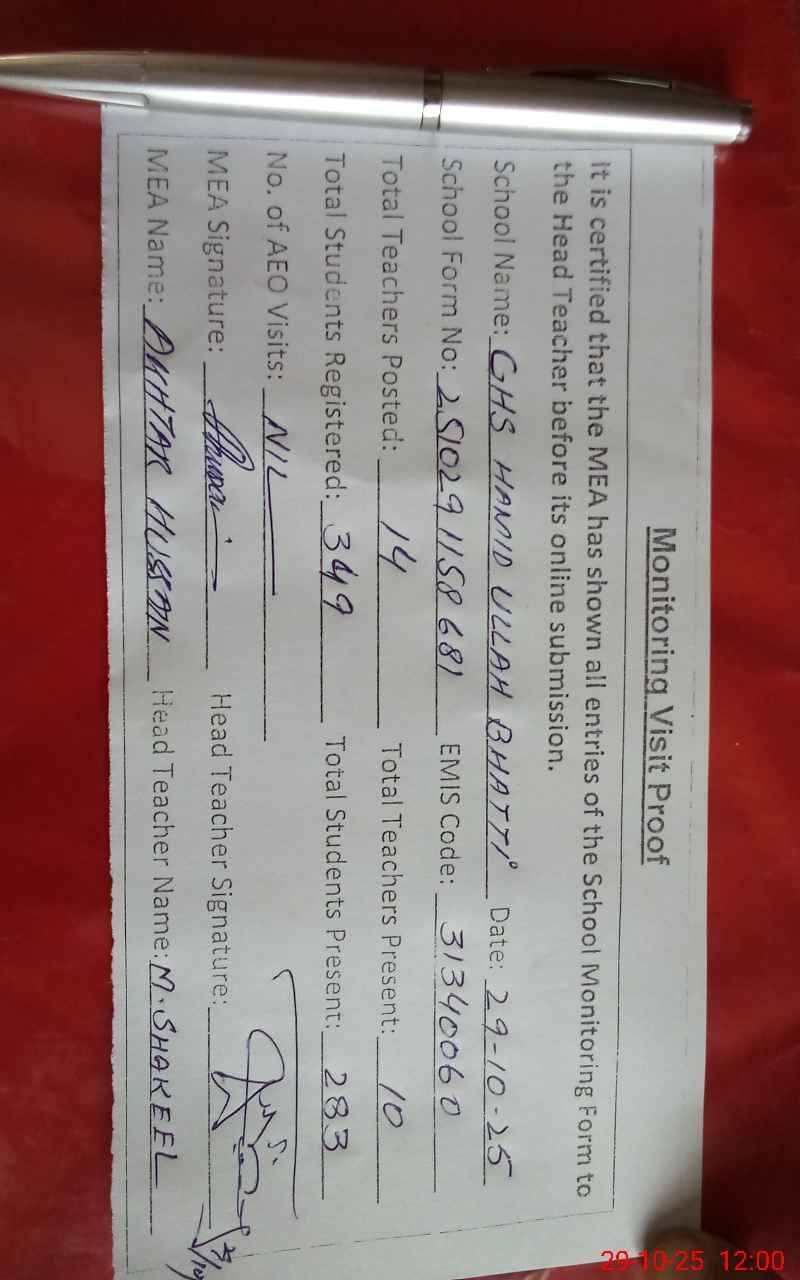 Monitoring Visit Proof
It is certified that the MEA has shown all entries of the School Monitoring Form to
the Head Teacher before its online submission.
School Name: GHS HAMID ULLAH BHATTI Date: 29-10-25
School Form No: 251029 1158 681 EMIS Code: 31340060
Total Teachers Posted: 14 Total Teachers Present: 10
Total Students Registered: 349 Total Students Present: 283
No. of AEO Visits: NIL
MEA Signature: Head Teacher Signature:
MEA Name: AKHTAR HUSSAIN Head Teacher Name: M. SHAKEEL
29-10-25 12:00